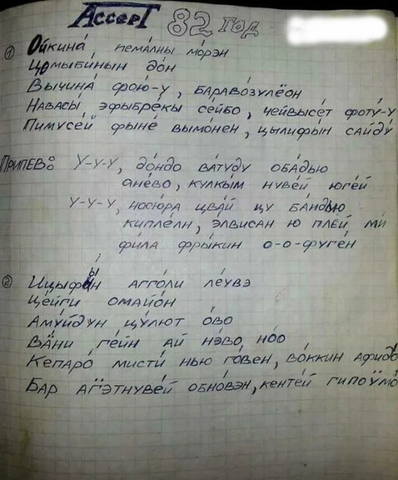 Accept 82 год
① Ойкина́, кема́лны мо́рэн
Цо́мыби́нын до́н
Вычина́ фою́-у, баравозулёон
Навасы́ эфыбре́кы сейбо, чейвысе́т фоту́-у
Пимусе́й фыне́ вымонен, цылифын сайду́
Припев: У-у-у, до́ндо ва́туду оба́дью
ане́во, кулкы́м нуве́й юге́й
У-у-у, носю́ра цва́й цу ба́ндью
кипле́лн, э́лвисан ю плёй ми́
фи́ла фры́кин о-о-фуге́н
② Ицыфы́н агго́ли ле́увэ
Це́йги омайо́н
Аму́йдун цу́лют о́во
Ва́ни ге́йн ай нэво но́о
Кепаро́ мисти́ нью го́вен, во́ккин афидо
Бар агэтнуве́й обно́вэн, кенте́й гипоумо